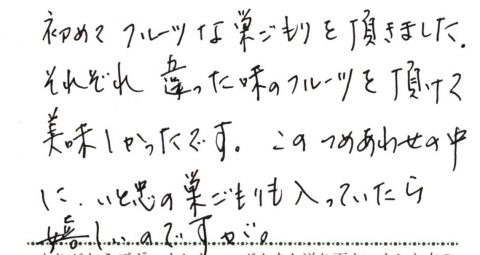 初めて フルーツな巣ごもりを頂きました.
それぞれ 違った味のフルーツを頂けて
美味しかったです。このつめあわせの中
に、いと忠の巣ごもりも入っていたら
嬉しいのですが。